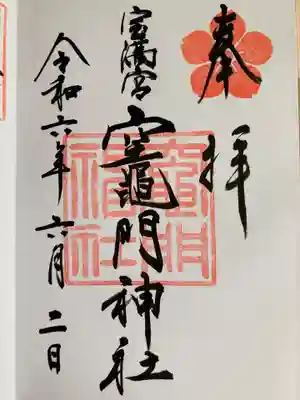 奉拝
宝満宮
竈門神社
令和六年六月二日
竈門神社